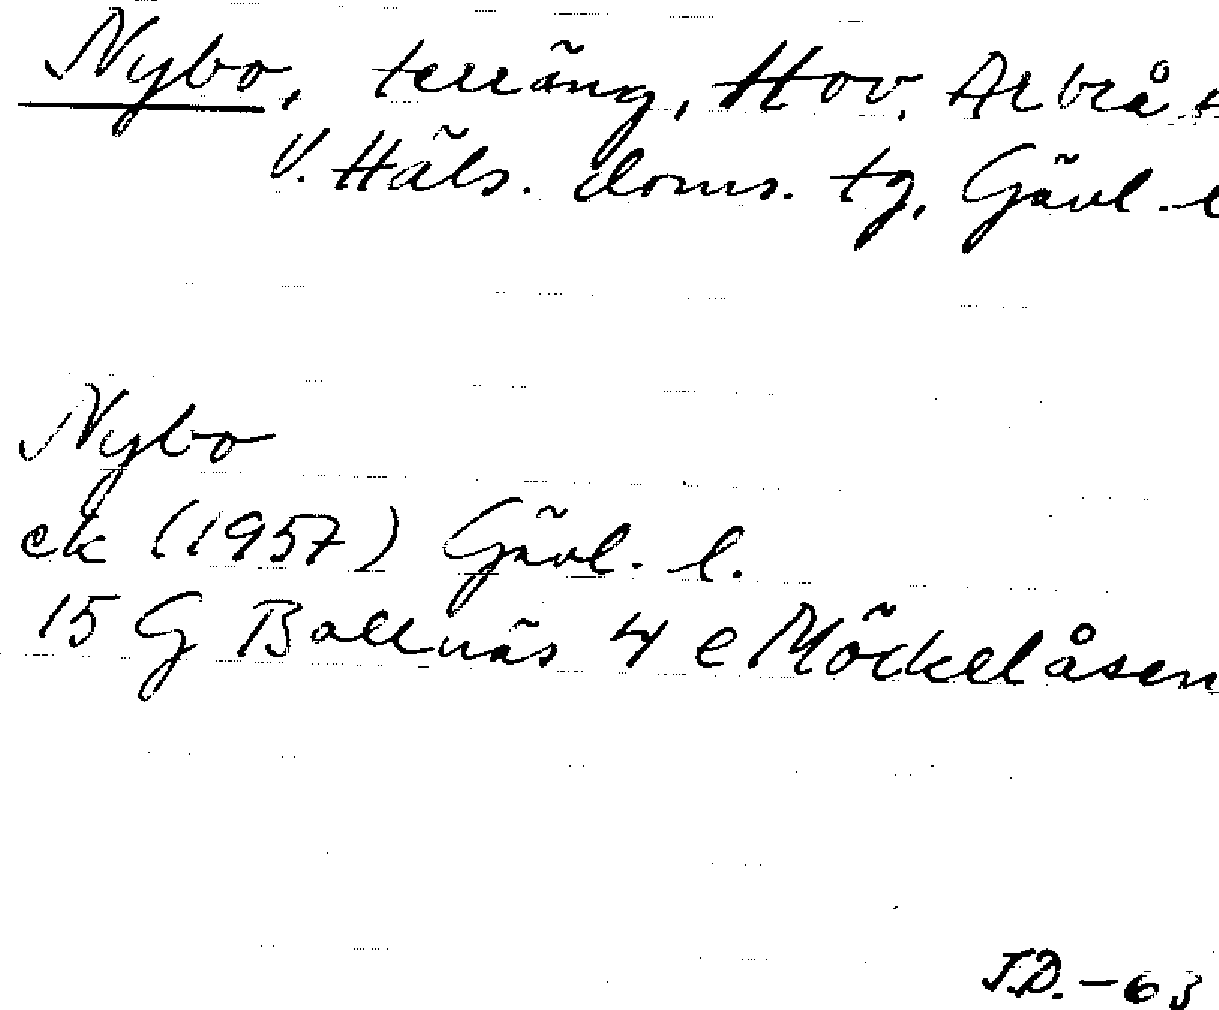 Nybo, terräng, Hov, Arbrå
V. Häls. doms. tg, Gävl. l
Nybo
ek (1957) Gävl. l.
15 G Bollnäs 4 e Möckelåsen
J.D. - 63